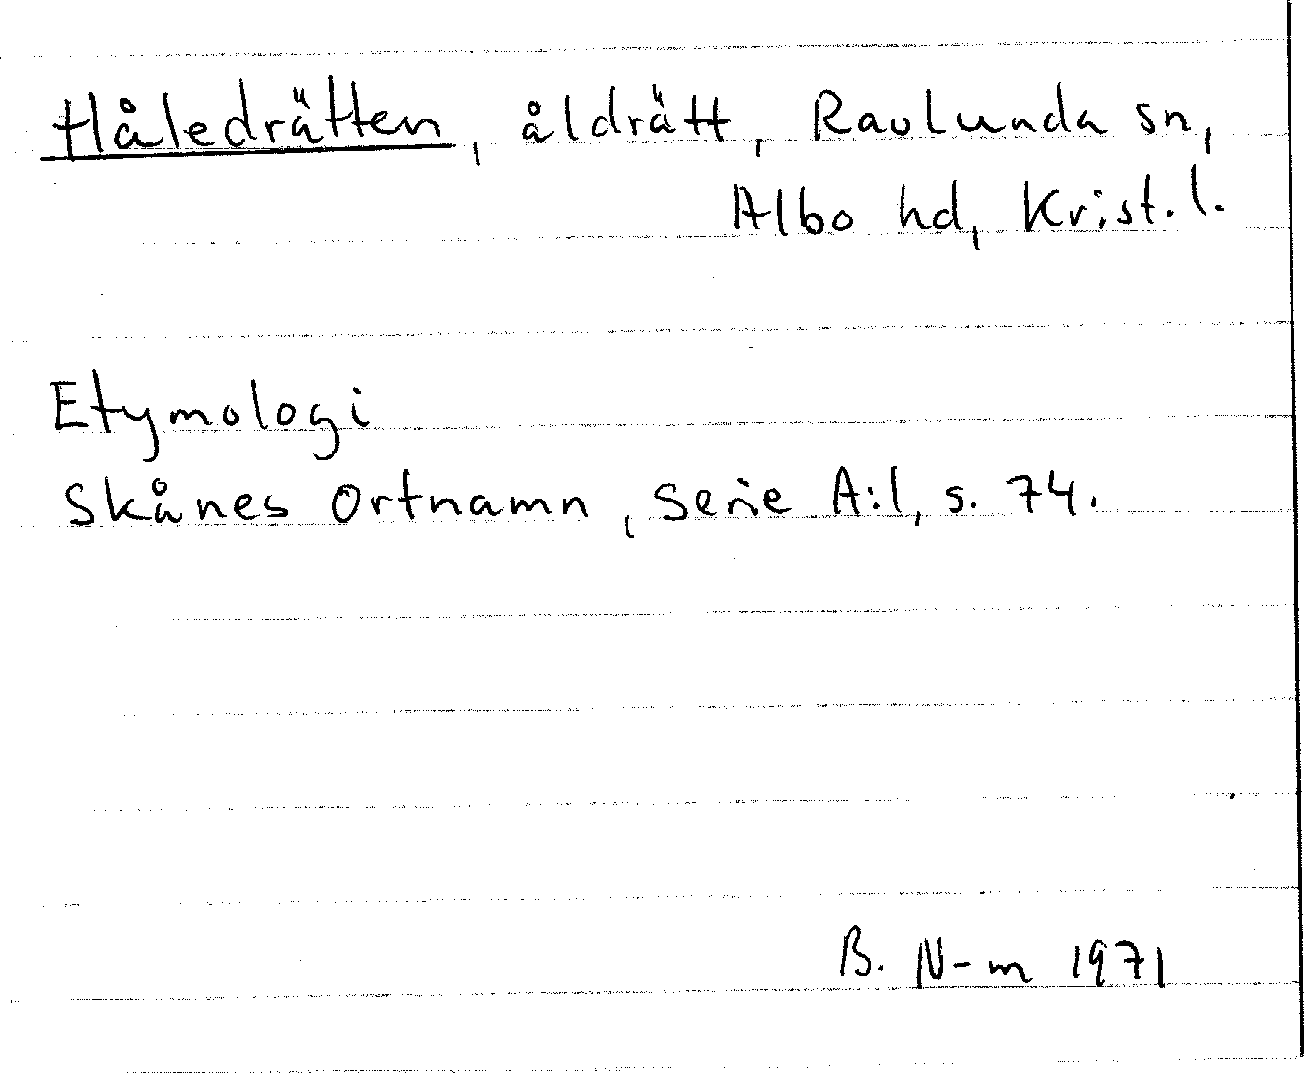 Håledrätten, åldrätt, Ravlunda sn,
Albo hd, Krist. l.
Etymologi
Skånes Ortnamn, Serie A:1, s. 74.
B. N-m 1971